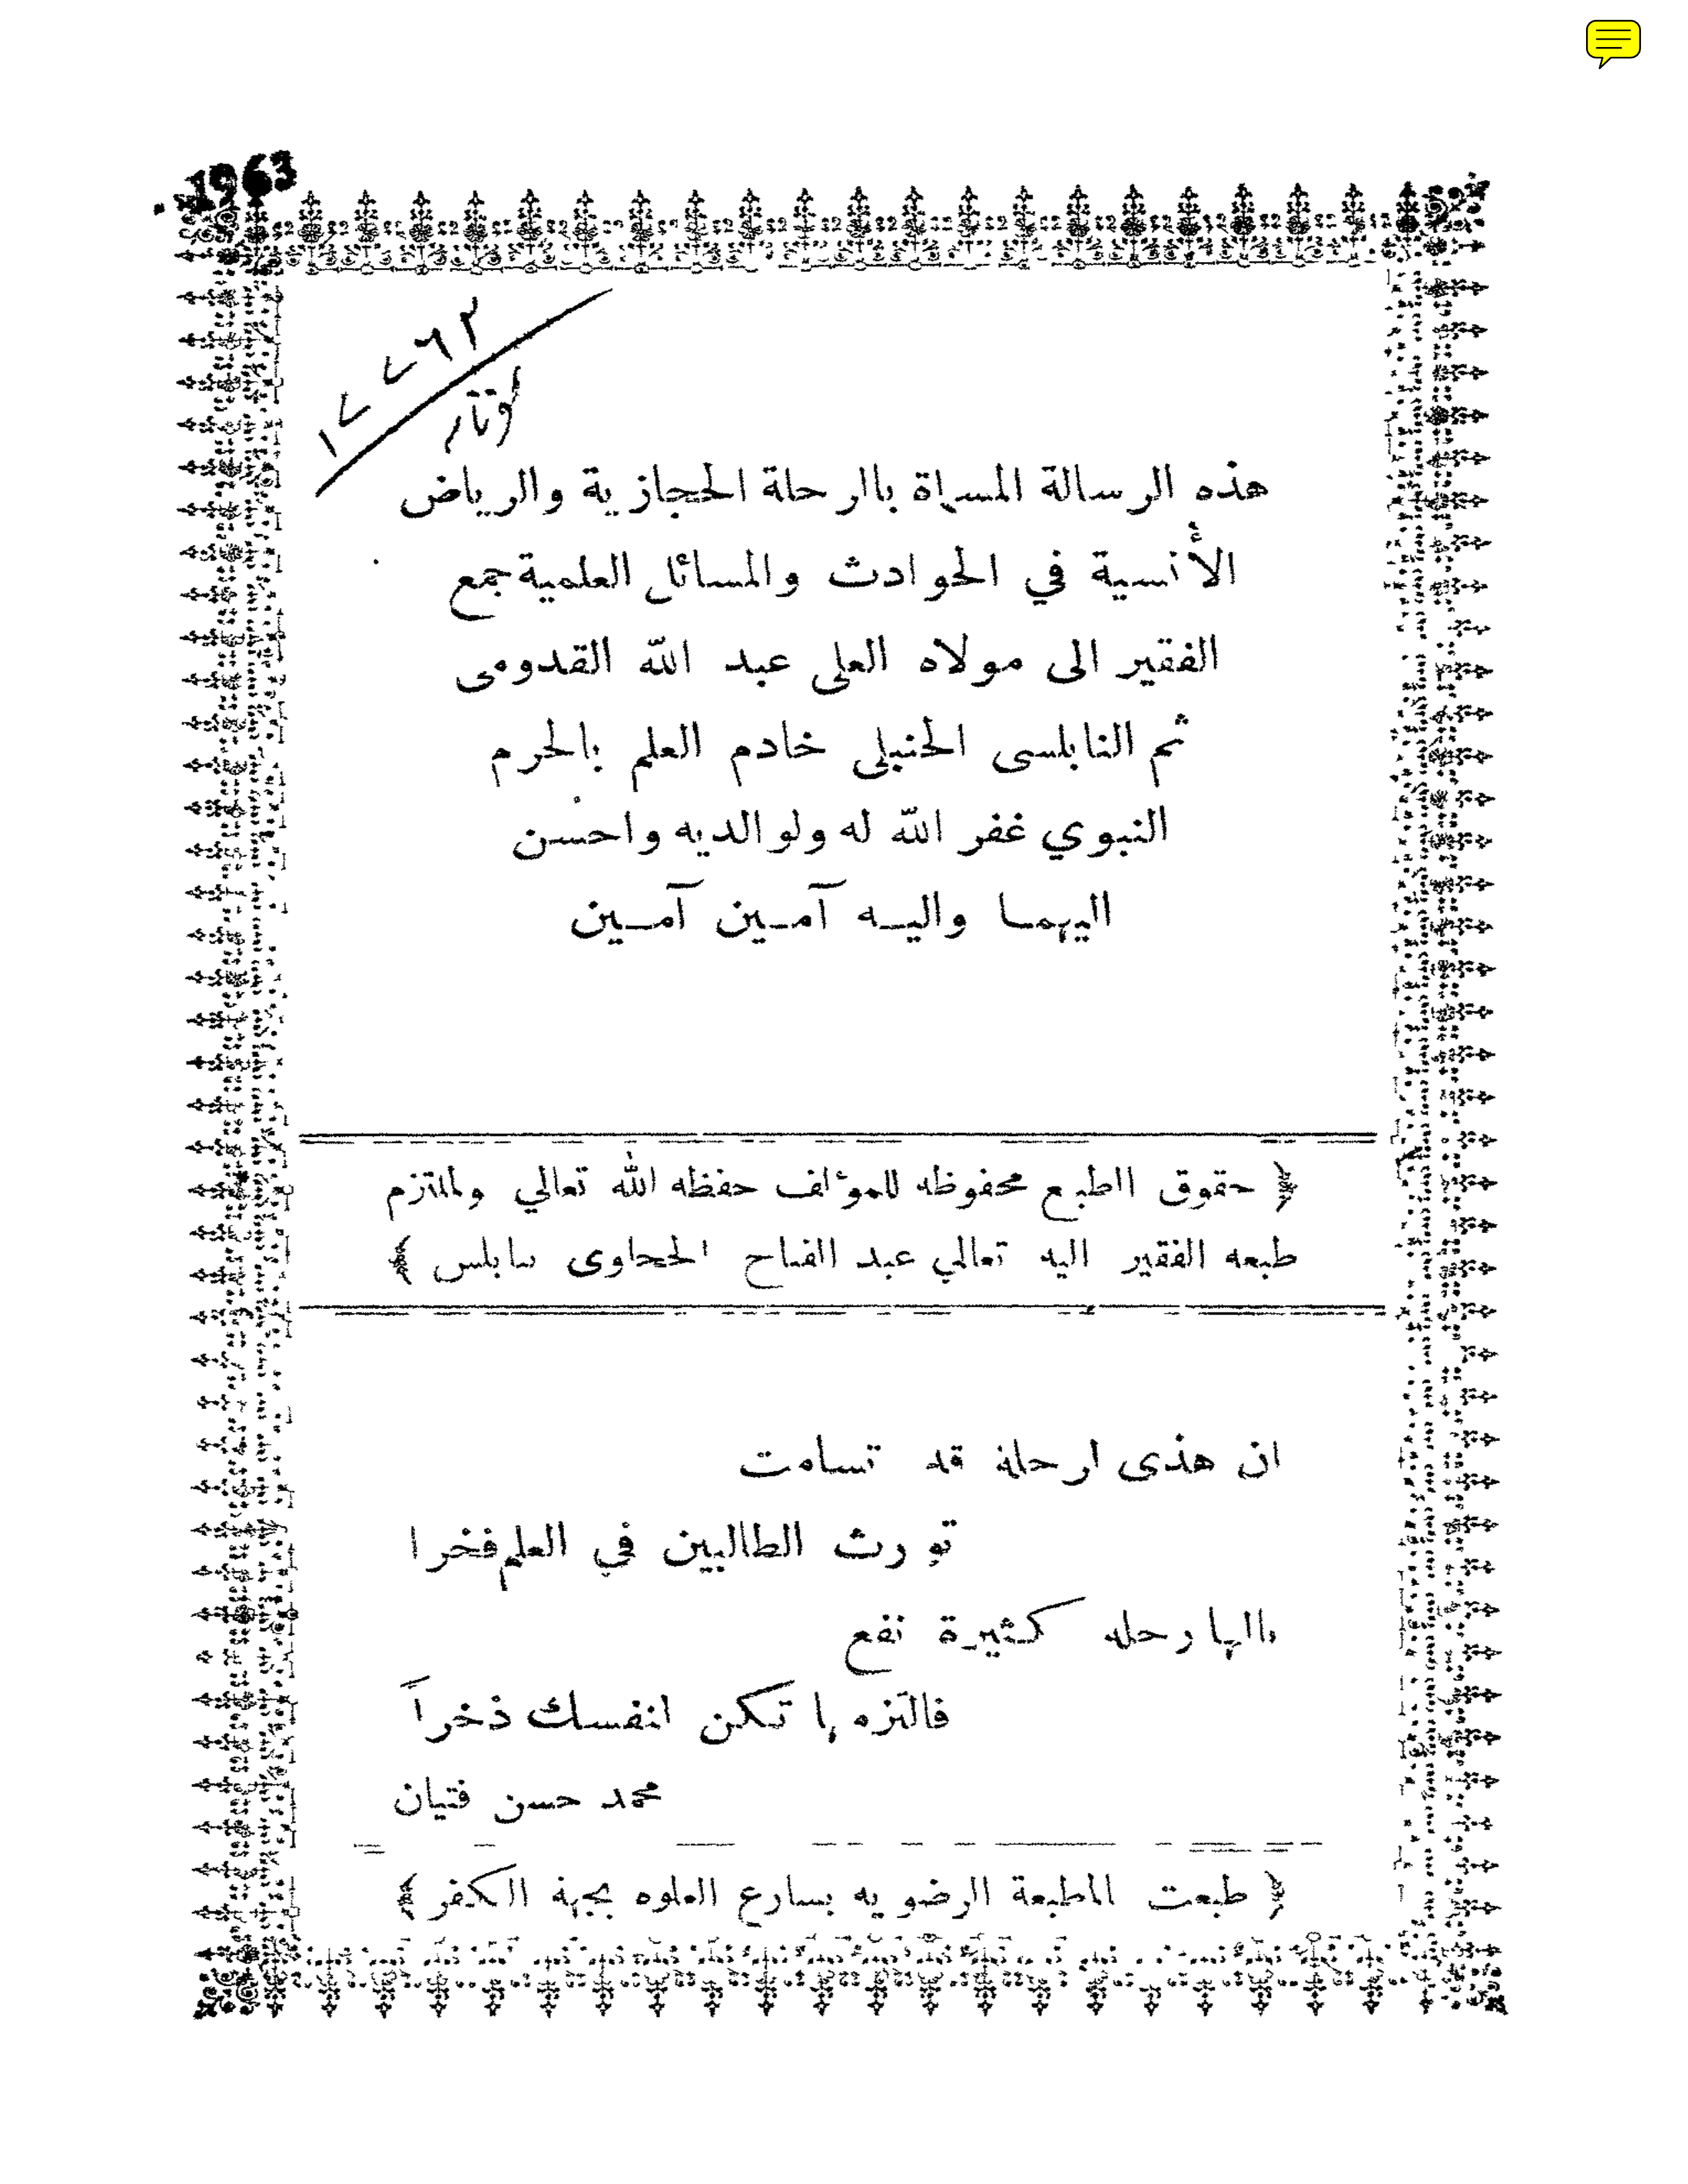 1963
هذه الرسالة المسماة باالرحلة الحجازية والرياض
الأنسية في الحوادث والمسائل العلمية جمع
الفقير الى مولاه العلى عبد الله القدومى
ثم النابلسى الحنبلى خادم العلم بالحرم
النبوي غفر الله له ولوالديه واحسن
اليهما واليه آمين آمين
﴿ حقوق الطبع محفوظه للمؤلف حفظه الله تعالي ولملتزم
طبعه الفقير اليه تعالي عبد الفتاح الحجاوى بنابلس ﴾
ان هذى الرحلة قد تسامت
تورث الطالبين في العلم فخرا
رحلة كثيرة نفع
تكن لنفسك ذخراً
محمد حسن فتيان
﴿ طبعت بالمطبعة الرضويه بشارع العلوه بجهة الكفر ﴾